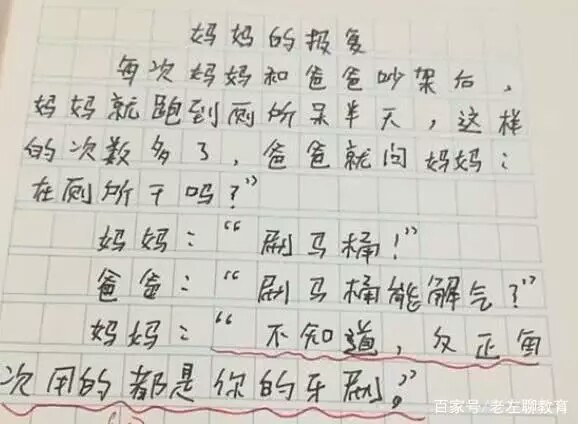 妈妈的报复
每次妈妈和爸爸吵架后，
妈妈就跑到厕所呆半天，这样
的次数多了，爸爸就问妈妈：
在厕所干吗？”
妈妈：“刷马桶！”
爸爸：“刷马桶能解气？”
妈妈：“不知道，反正每
次用的都是你的牙刷。”
百家号/老左聊教育